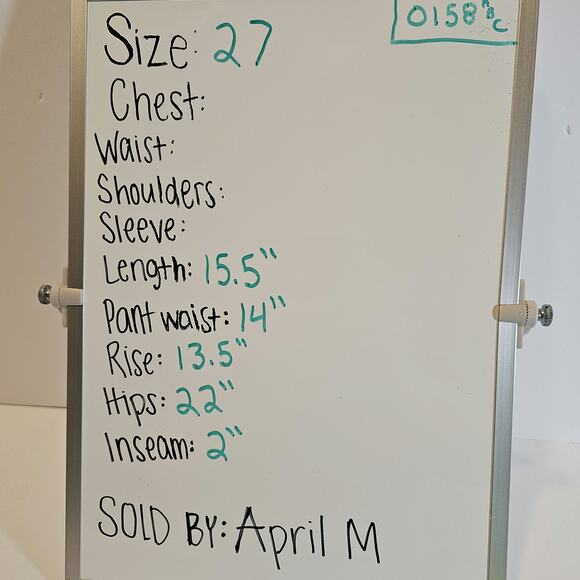 0158 ABC
Size: 27
Chest:
Waist:
Shoulders:
Sleeve:
Length: 15.5"
Pant waist: 14"
Rise: 13.5"
Hips: 22"
Inseam: 2"
SOLD BY: April M